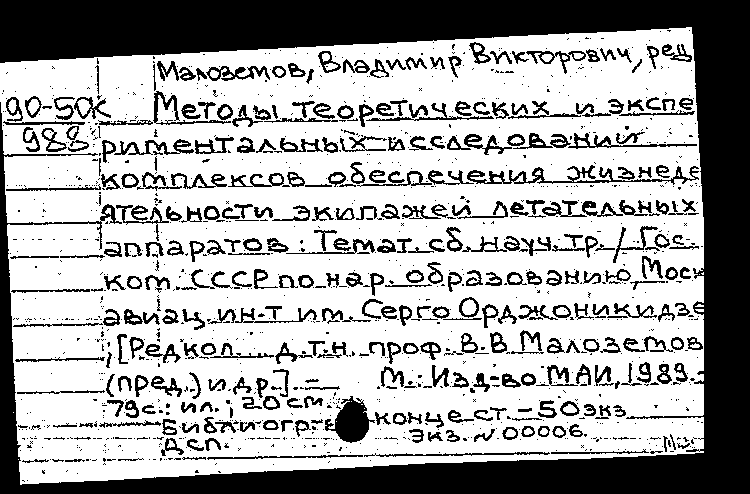 Малоземов, Владимир Викторович, ред
90-50к Методы теоретических и экспе
988 риментальных исследований
комплексов обеспечения жизнеде
ятельности экипажей летательных
аппаратов: Темат. сб. науч. тр. / Гос.
ком. СССР по нар. образованию, Моск
авиац. ин-т им. Серго Орджоникидзе
; [Редкол. ... д.т.н. проф. В.В. Малоземов
(пред.) и др.]. - М.: Изд-во МАИ, 1989.-
79с.: ил.; 20 см.
Библиогр. в конце ст. - 50 экз
Дсп. Экз. N 00006.